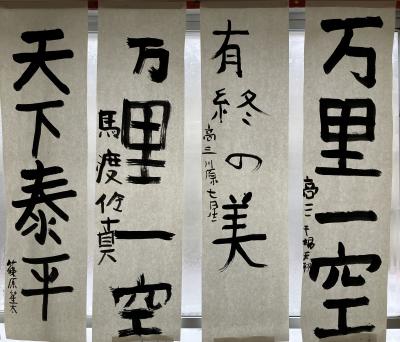 万里一空
高三
有終の美
高三 川原七星
万里一空
馬渡伶真
天下泰平
篠原笙太